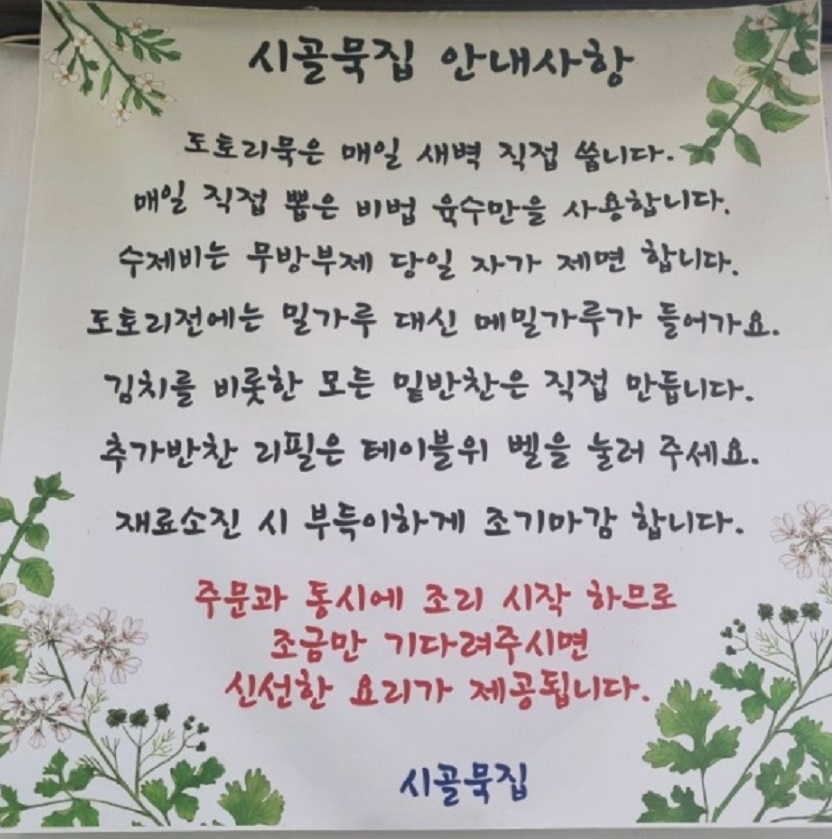 시골묵집 안내사항
도토리묵은 매일 새벽 직접 쑵니다.
매일 직접 뽑은 비법 육수만을 사용합니다.
수제비는 무방부제 당일 자가 제면 합니다.
도토리전에는 밀가루 대신 메밀가루가 들어가요.
김치를 비롯한 모든 밑반찬은 직접 만듭니다.
추가반찬 리필은 테이블위 벨을 눌러 주세요.
재료소진 시 부득이하게 조기마감 합니다.
주문과 동시에 조리 시작 하므로
조금만 기다려주시면
신선한 요리가 제공됩니다.
시골묵집